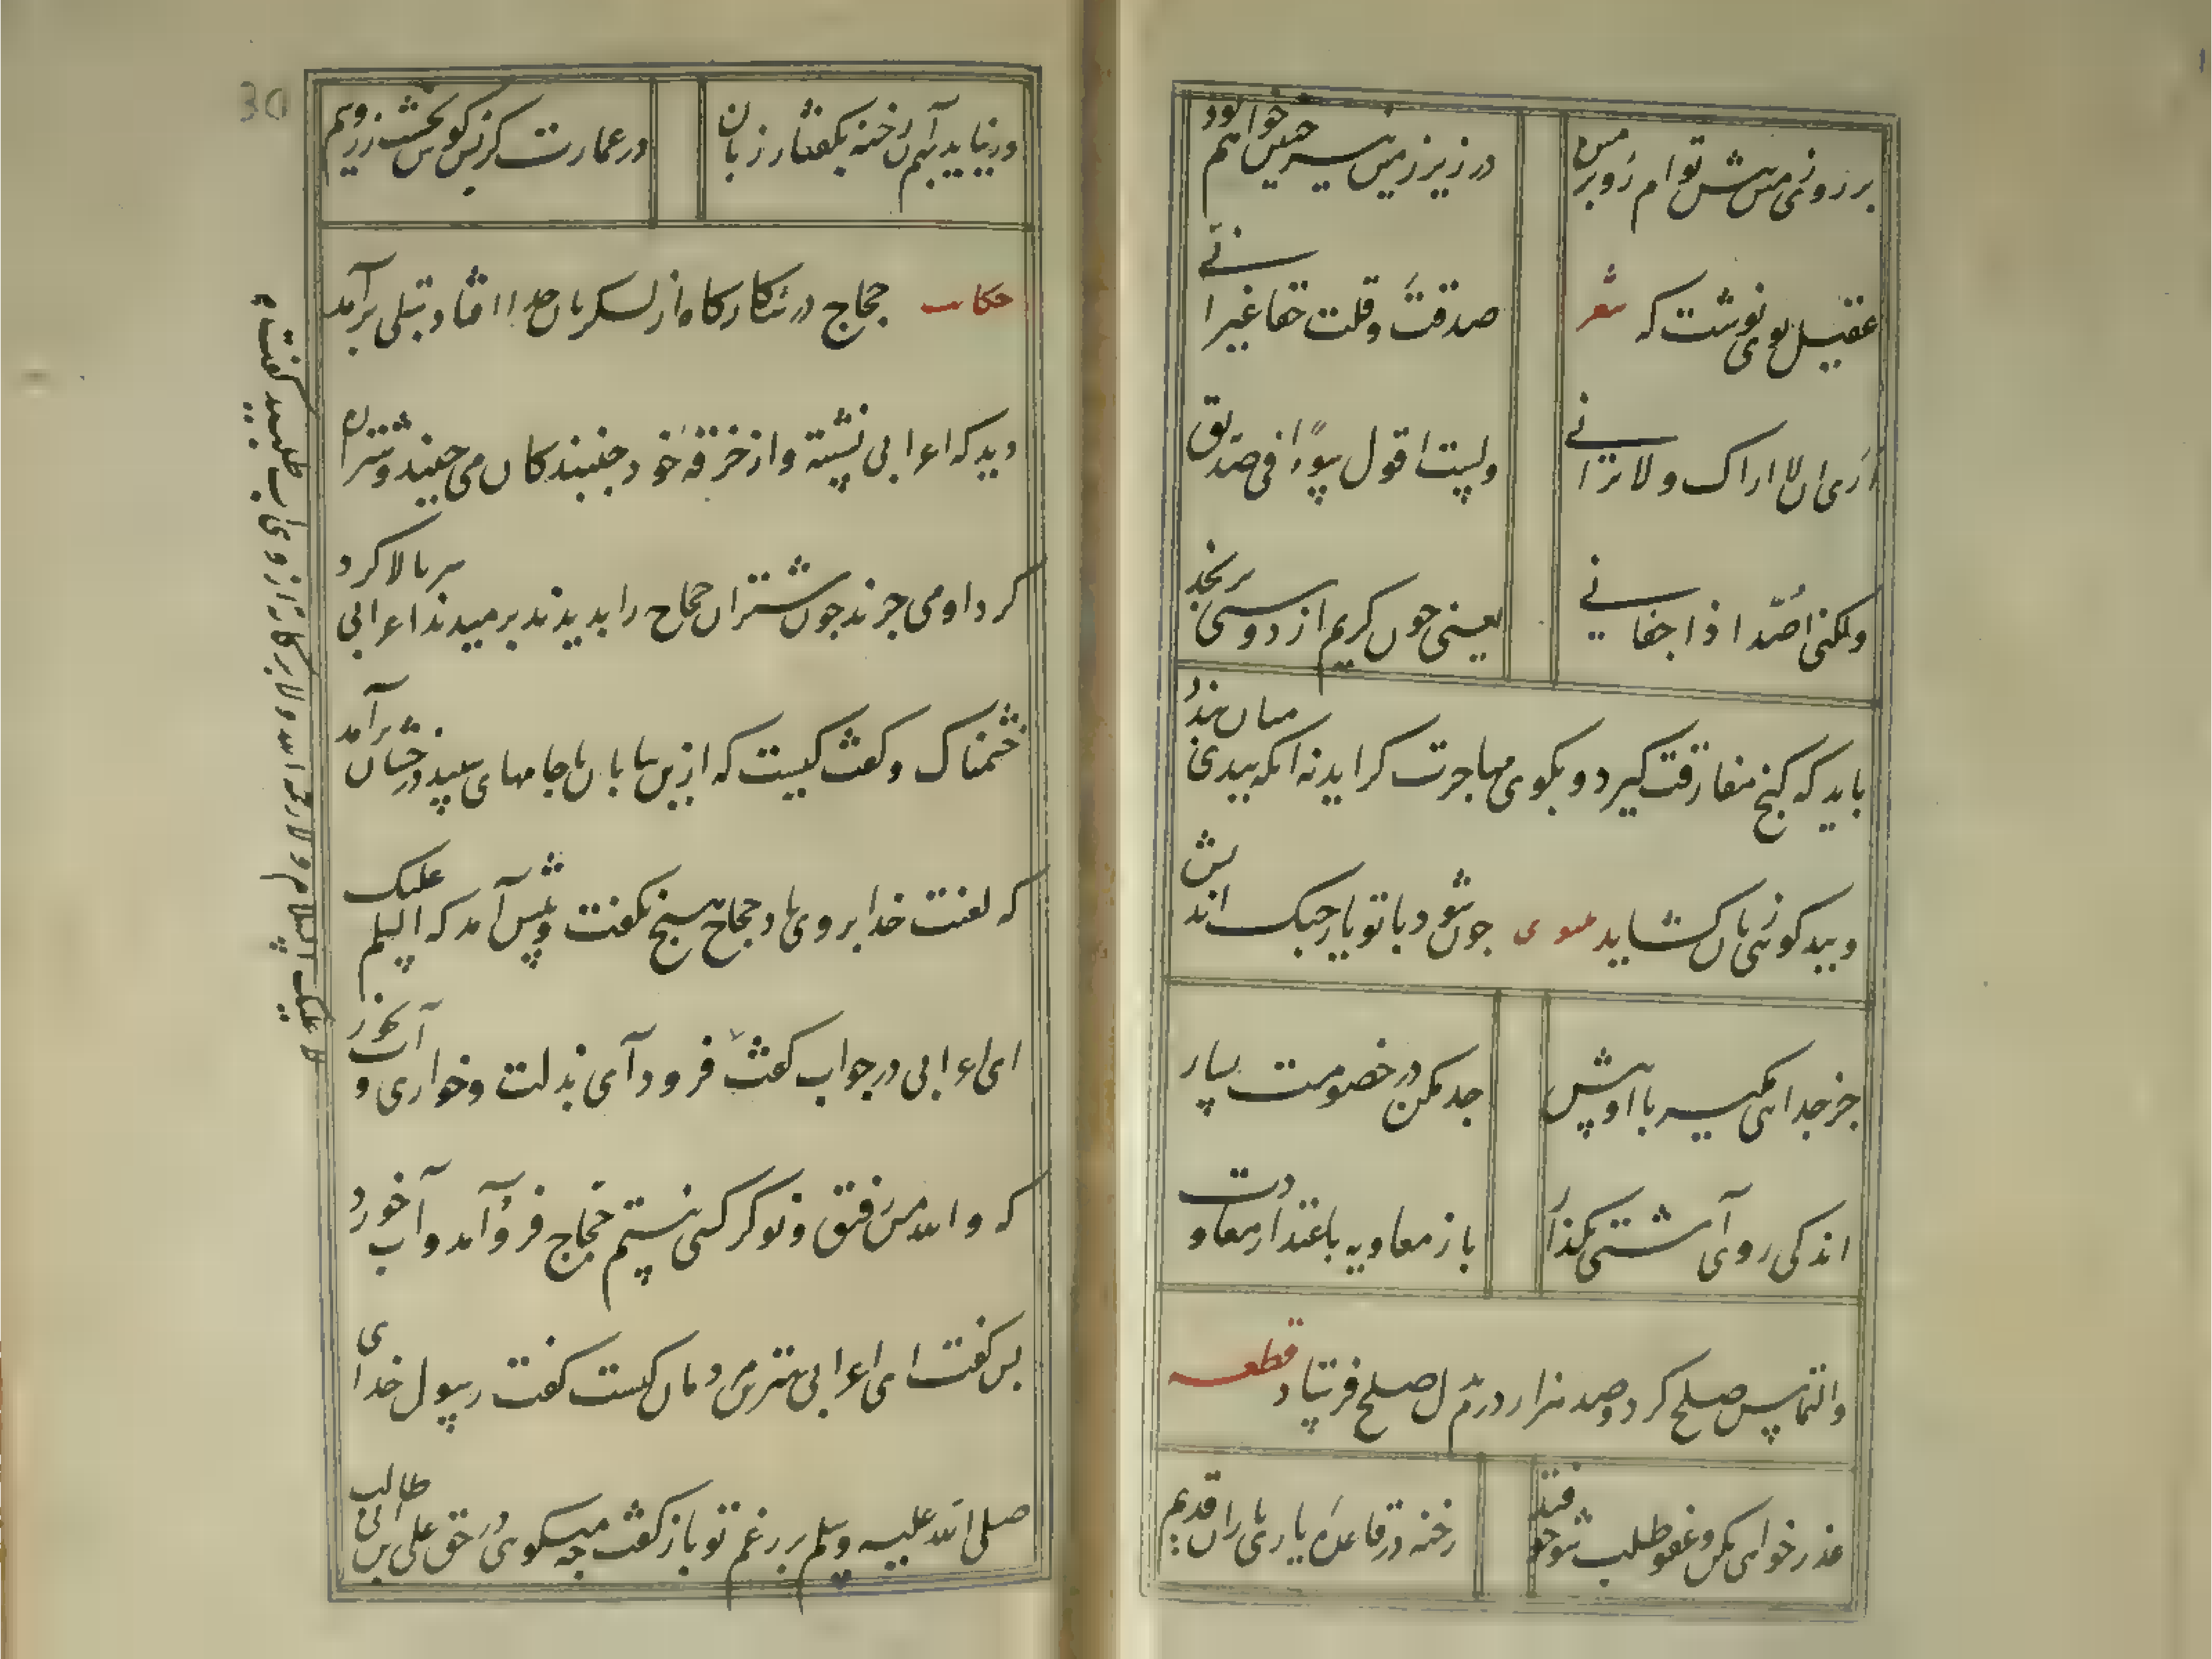 بر روی زمین پیش توام روبر زمین در زیر زمین نیز چنین خواهم بود
عقیل بوی نوشت که شعر صدقت وقلت حقا غیر انی
اری ان لا اراک ولا ترانی ولست اقول سوءا فی صدیق
ولکنی اصد اذا جفانی یعنی چون کریم از دوستی برنجد
باید که کنج مفارقت گیرد و بکوی مهاجرت گراید نه انکه ببدی میان بندد
و ببدگویی زبان گشاید مثنوی چون شود با تو یار جنگ اندیش
جز جدایی مگیر با او پیش جد مکن در خصومت بسیار
اندکی روی آشتی بگذار باز معاویه باعتذار معاودت
والتماس صلح کرد و صد هزار درم بدل صلح فرستاد قطعه
عذرخواهی کن و عفو طلب شو چو فتد رخنه در قاعده یاری یاران قدیم
ور نیاید بهم آن رخنه بگفتار زبان در عمارت گریش کوش بخشت زر و سیم
حکایت حجاج در شکارگاه از لشکریان جدا افتاد و بتلی برآمد
دید که اعرابی نشسته و از خرقه خود جنبندگان می چیند و شتران
گرد او می چرند چون شتران حجاج را بدیدند برمیدند اعرابی سر بالا کرد
خشمناک و گفت کیست که ازین بیابان با جامهای سپید درخشان برآمد
که لعنت خدا بر وی باد حجاج هیچ نگفت و پیش آمد که السلم علیک
ای اعرابی در جواب گفت فرود آی بذلت و خواری و آب بخور
که والله من رفیق و نوکر کسی نیستم حجاج فرود آمد و آب خورد
پس گفت ای اعرابی بهترین مردمان کیست گفت رسول خدای
صلی الله علیه وسلم بر رغم تو باز گفت چه میگویی در حق علی بن ابی طالب
لا علیک السلام ولا رحمة الله ولا برکاته از وی آب طلبید گفت